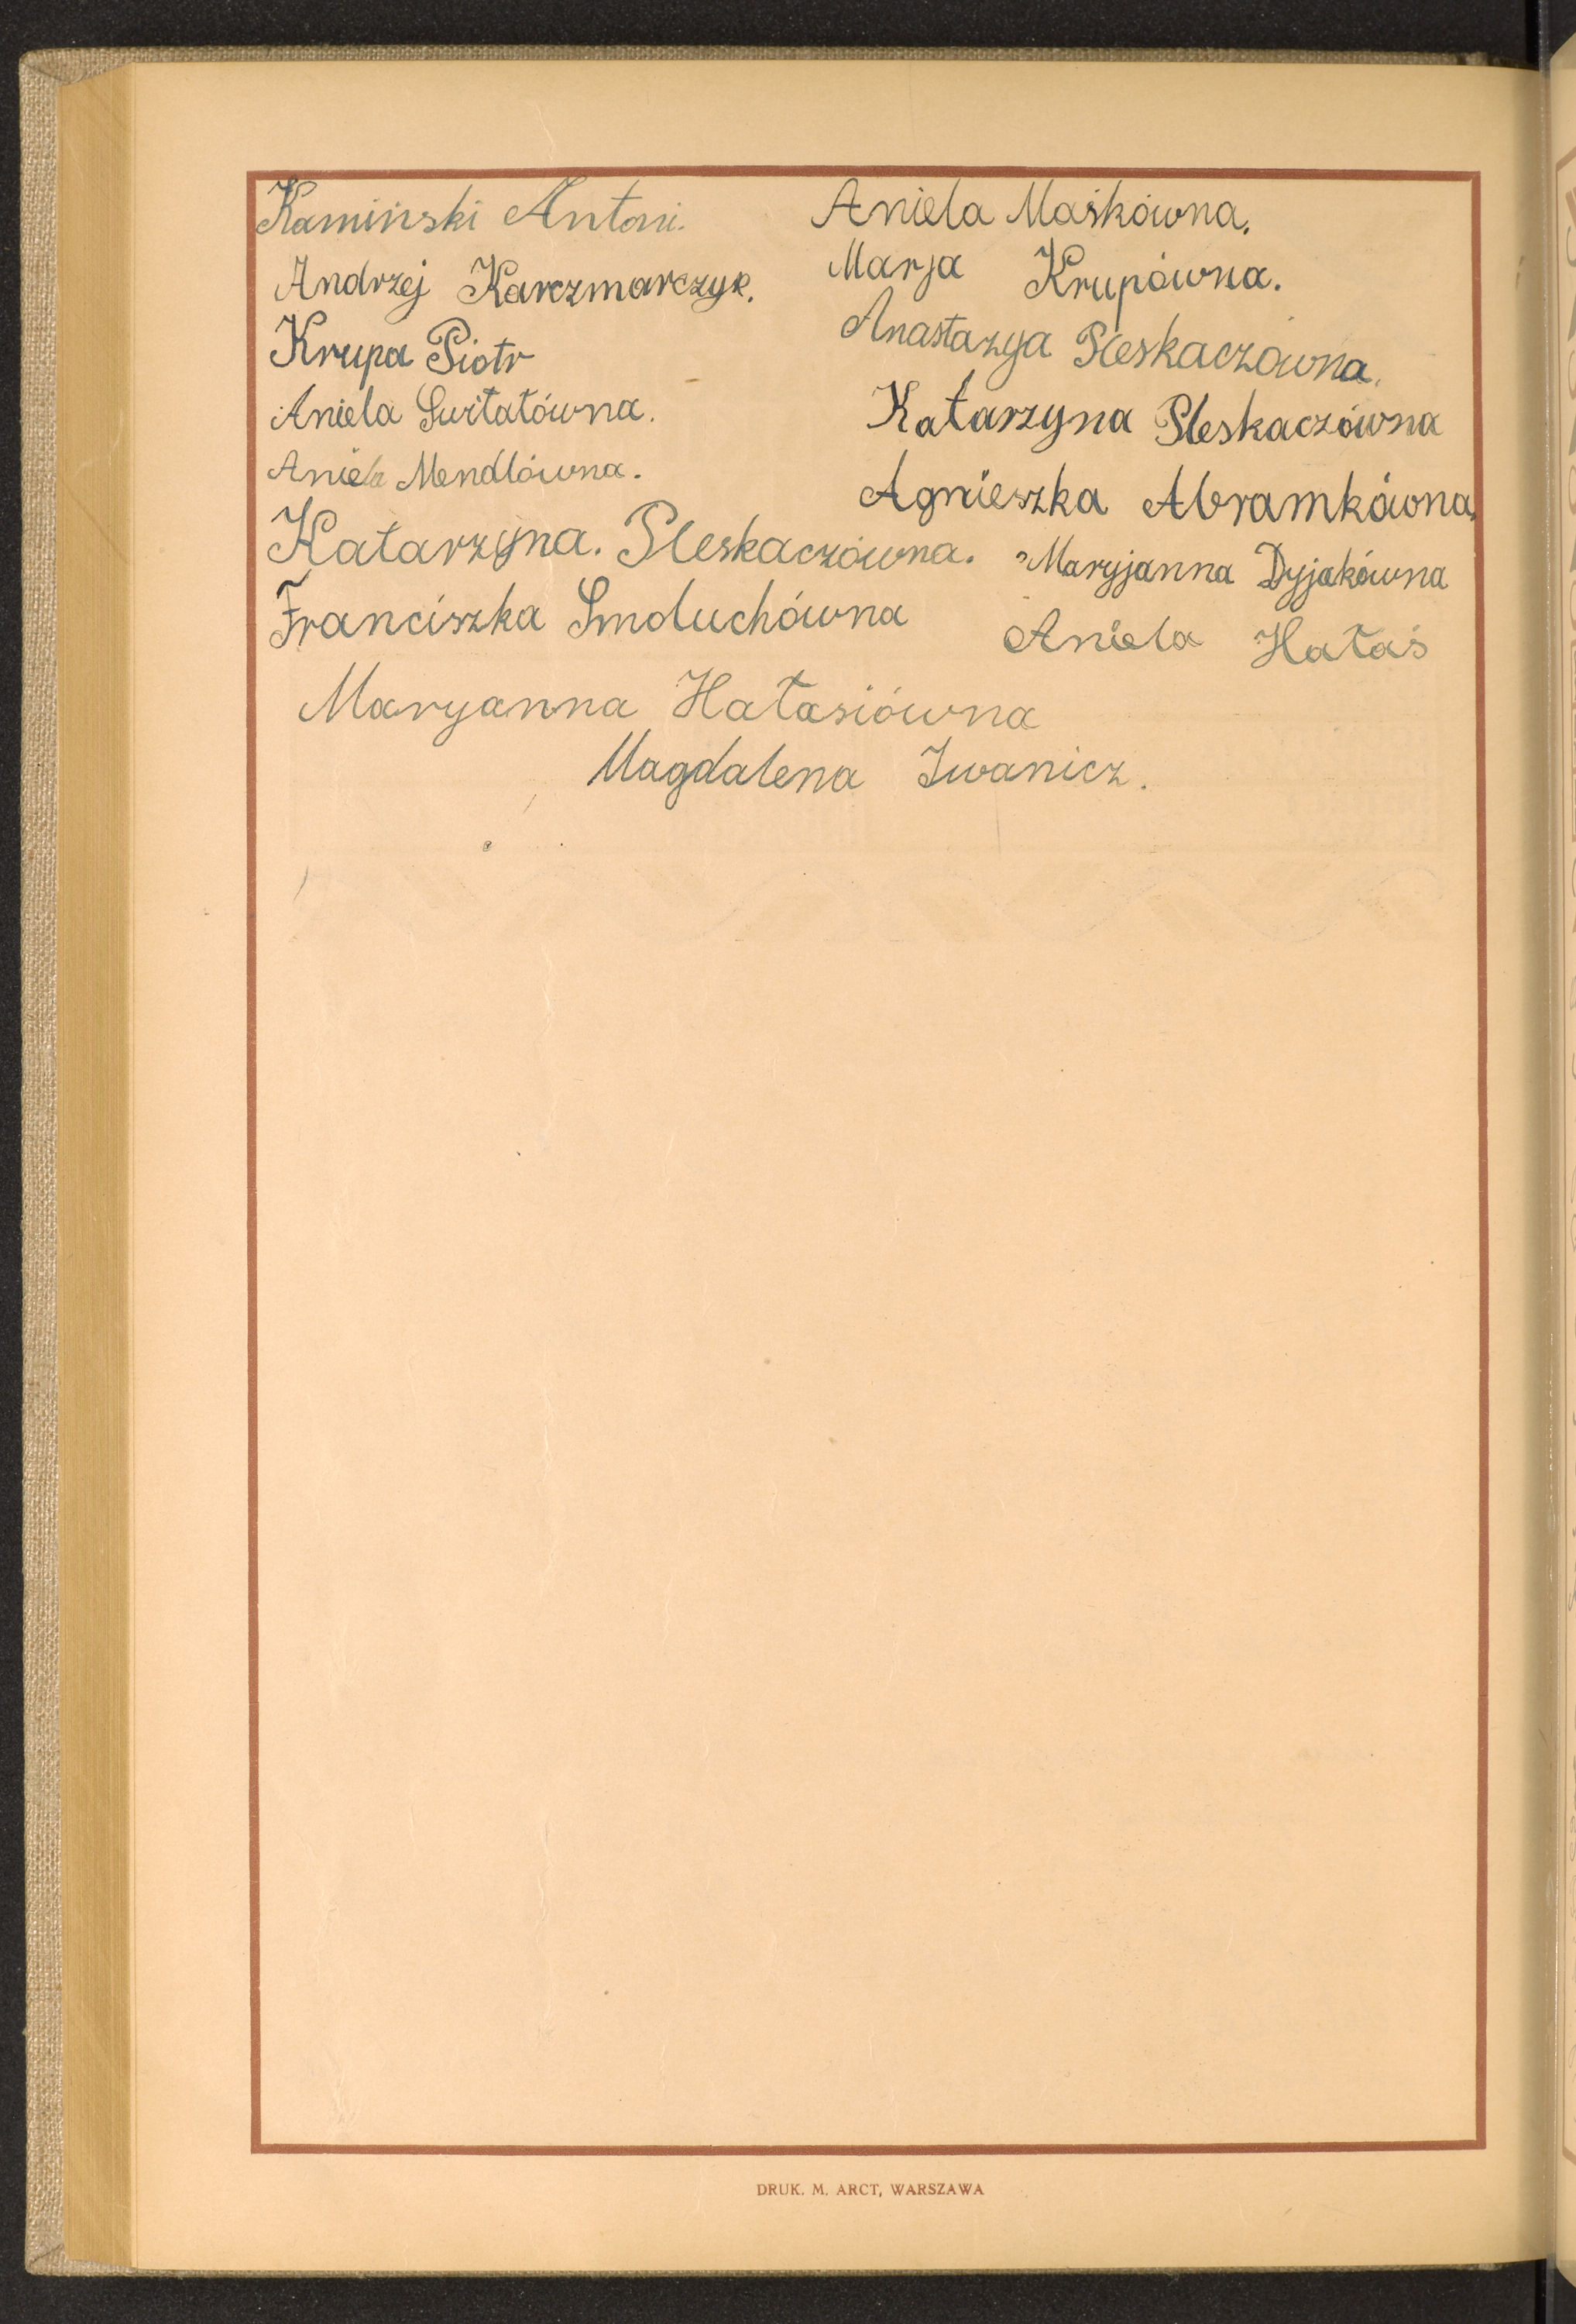 Kamiński Antoni.
Andrzej Karczmarczyk.
Krupa Piotr
Aniela Świtałówna.
Aniela Mendlówna.
Katarzyna. Pleskaczówna.
Franciszka Smoluchówna
Maryanna Hałasiówna
Magdalena Iwanicz.
Aniela Maśkówna.
Marja Krupówna.
Anastazya Pleskaczówna.
Katarzyna Pleskaczówna
Agnieszka Abramkówna.
Maryjanna Dyjakówna
Aniela Hałaś
DRUK. M. ARCT, WARSZAWA